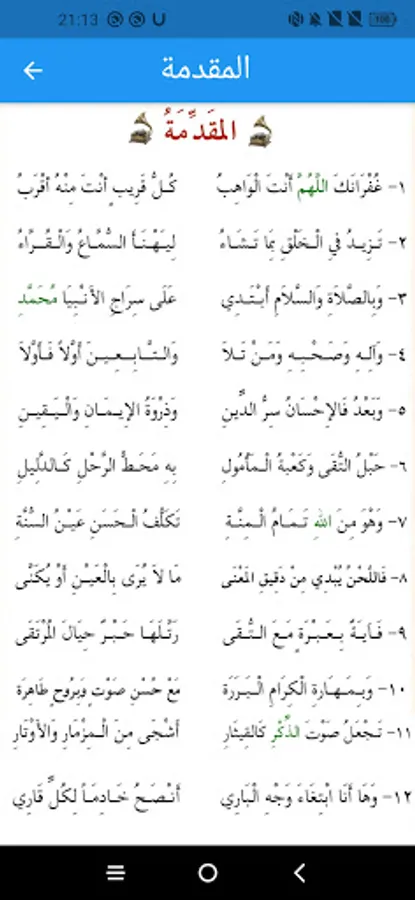 21:13
المقدمة
المَقَدِّمَةُ
١- غُفْرَانَكَ اللَّهُمُ أَنْتَ الْوَاهِبُ كُلُّ قَرِيبٍ أَنْتَ مِنْهُ أَقْرَبُ
٢- تَزِيدُ فِي الْخَلْقِ بِمَا تَشَاءُ لِيَهْنَأَ السُّمَاعُ وَالْقُرَّاءُ
٣- وَبِالصَّلَاةِ وَالسَّلَامِ أَبْتَدِي عَلَى سِرَاجِ الأَنْبِيَا مُحَمَّدِ
٤- وَآلِهِ وَصَحْبِهِ وَمَنْ تَلَا وَالتَّابِعِينَ أَوَّلاً فَأَوَّلَا
٥- وَبَعْدُ فَالإِحْسَانُ سِرُّ الدِّينِ وَذِرْوَةُ الإِيمَانِ وَالْيَقِينِ
٦- حَبْلُ التُّقَى وَكَعْبَةُ الْمَأْمُولِ بِهِ مَحَطُّ الرَّحْلِ كَالدَّلِيلِ
٧- وَهْوَ مِنَ اللهِ تَمَامُ الْمِنَّةِ تَكَلُّفُ الْحَسَنِ عَيْنُ السُّنَّةِ
٨- فَاللَّحْنُ يُبْدِي مِنْ دَقِيقِ الْمَعْنَى مَا لَا يُرَى بِالْعَيْنِ أَوْ يُكَنَّى
٩- فَآيَةٌ بِعَبْرَةٍ مَعَ التُّقَى رَتَّلَهَا حَبْرٌ حِيَالَ الْمُرْتَقَى
١٠- وَبِمَهَارَةِ الْكِرَامِ الْبَرَرَةِ مَعْ حُسْنِ صَوْتٍ وَبِرُوحٍ طَاهِرَةِ
١١- تَجْعَلُ صَوْتَ الذِّكْرِ كَالقِيثَارِ أَشْجَى مِنَ الْمِزْمَارِ وَالأَوْتَارِ
١٢- وَهَا أَنَا ابْتِغَاءَ وَجْهِ الْبَارِي أَنْصَحُ خَادِمَاً لِكُلِّ قَارِي